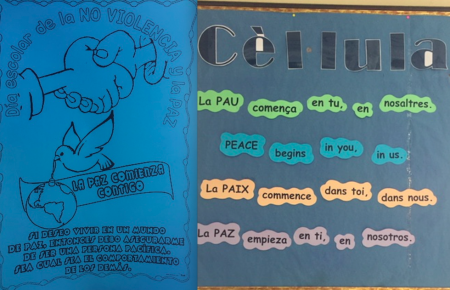 Día escolar de la NO VIOLENCIA y la PAZ
LA PAZ COMIENZA
CONTIGO
SI DESEO VIVIR EN UN MUNDO
DE PAZ, ENTONCES DEBO ASEGURARME
DE SER UNA PERSONA PACÍFICA,
SEA CUAL SEA EL COMPORTAMIENTO
DE LOS DEMÁS.
Cèl·lula
La PAU comença en tu, en nosaltres.
PEACE begins in you, in us.
La PAIX commence dans toi, dans nous.
La PAZ empieza en ti, en nosotros.